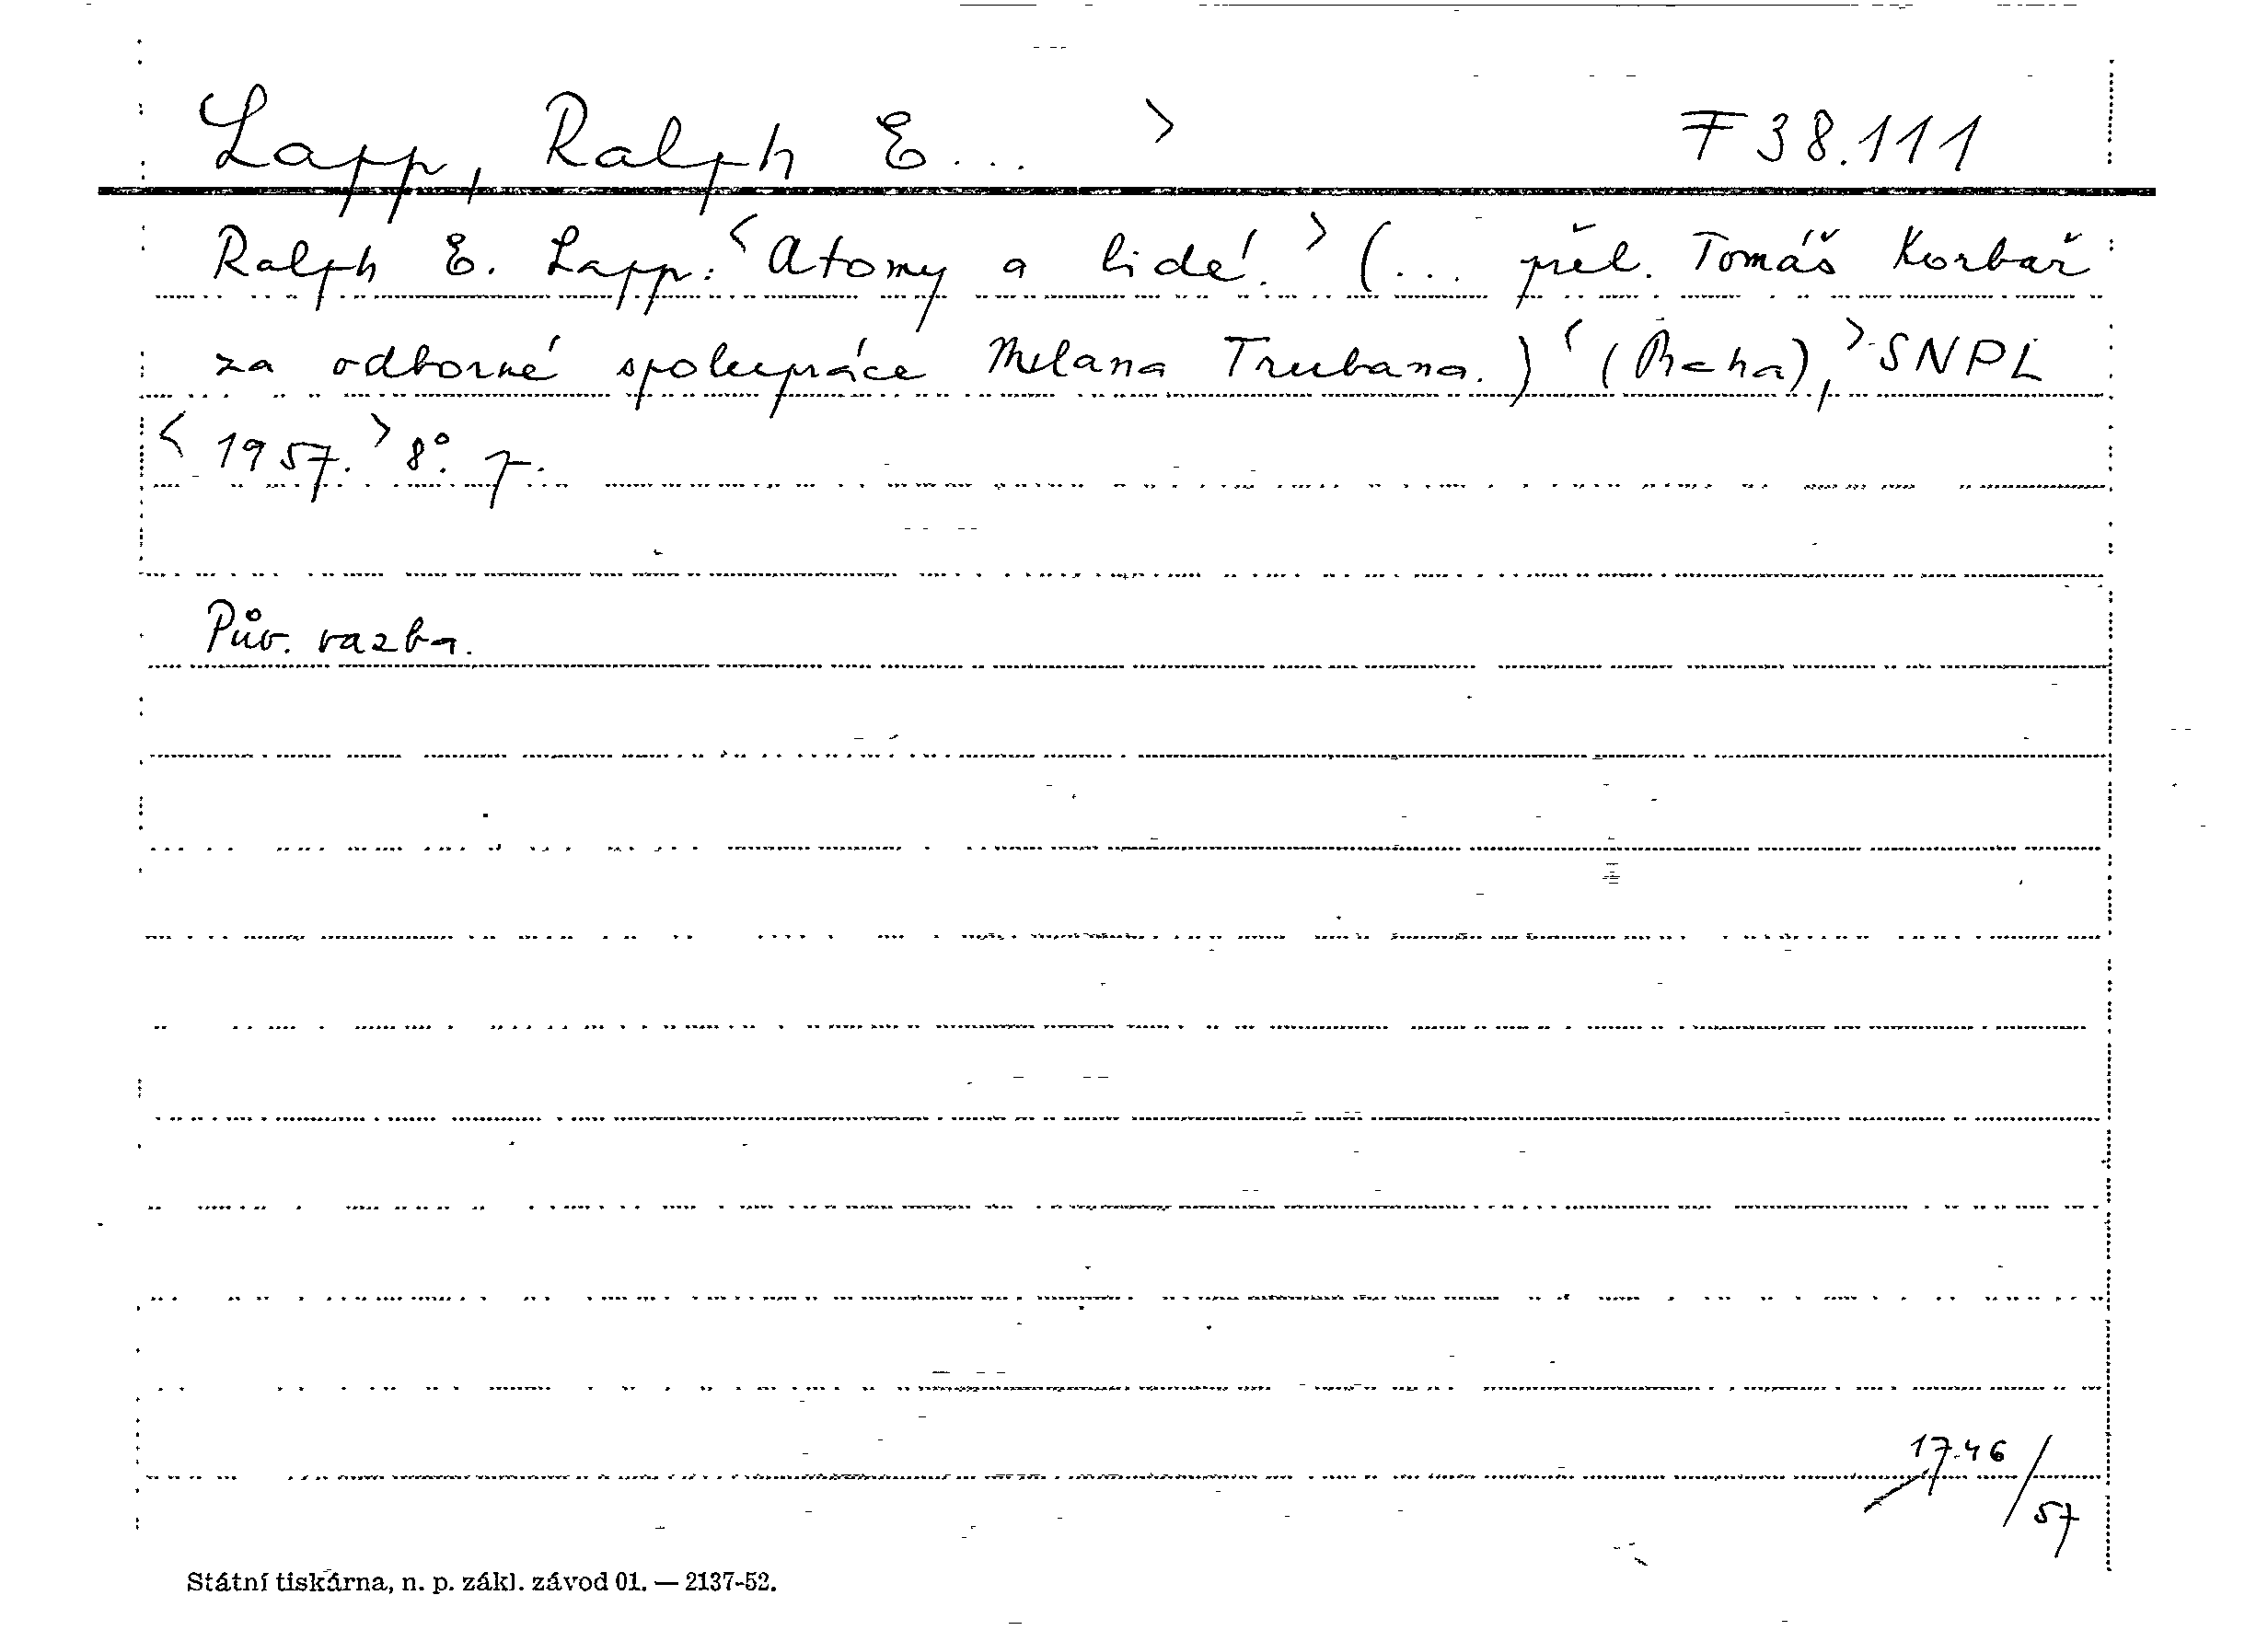 Lapp, Ralph E... > F 38.111
Ralph E. Lapp: <Atomy a lidé.> (... přel. Tomáš Korbař
za odborné spolupráce Milana Trubana.) <(Praha),> SNPL
<1957.> 8°. p.
Pův. vazba.
1746/57
Státní tiskárna, n. p. zákl. závod 01. — 2137-52.